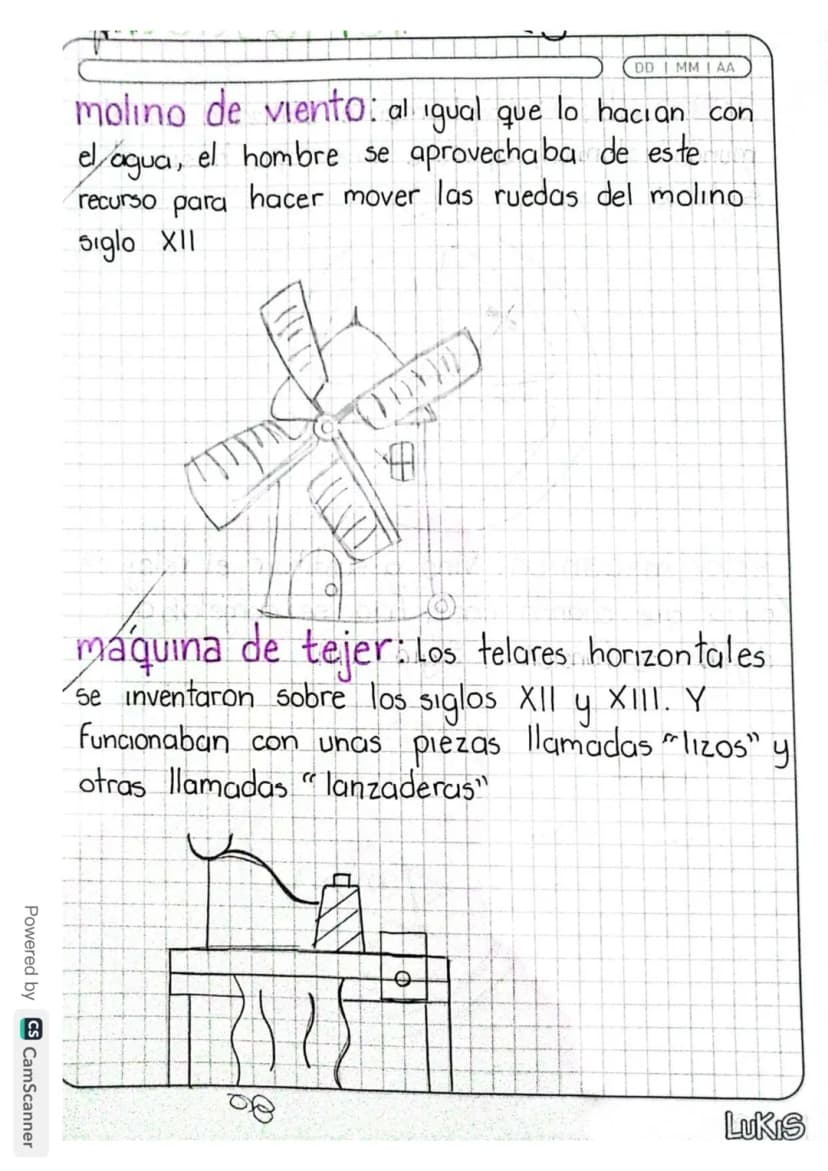 DD | MM | AA
molino de viento: al igual que lo hacian con
el agua, el hombre se aprovechaba de este
recurso para hacer mover las ruedas del molino
siglo XII
máquina de tejer: Los telares horizontales
se inventaron sobre los siglos XII y XIII. Y
funcionaban con unas piezas llamadas "lizos" y
otras llamadas "lanzaderas"
Powered by CS CamScanner
LUKIS